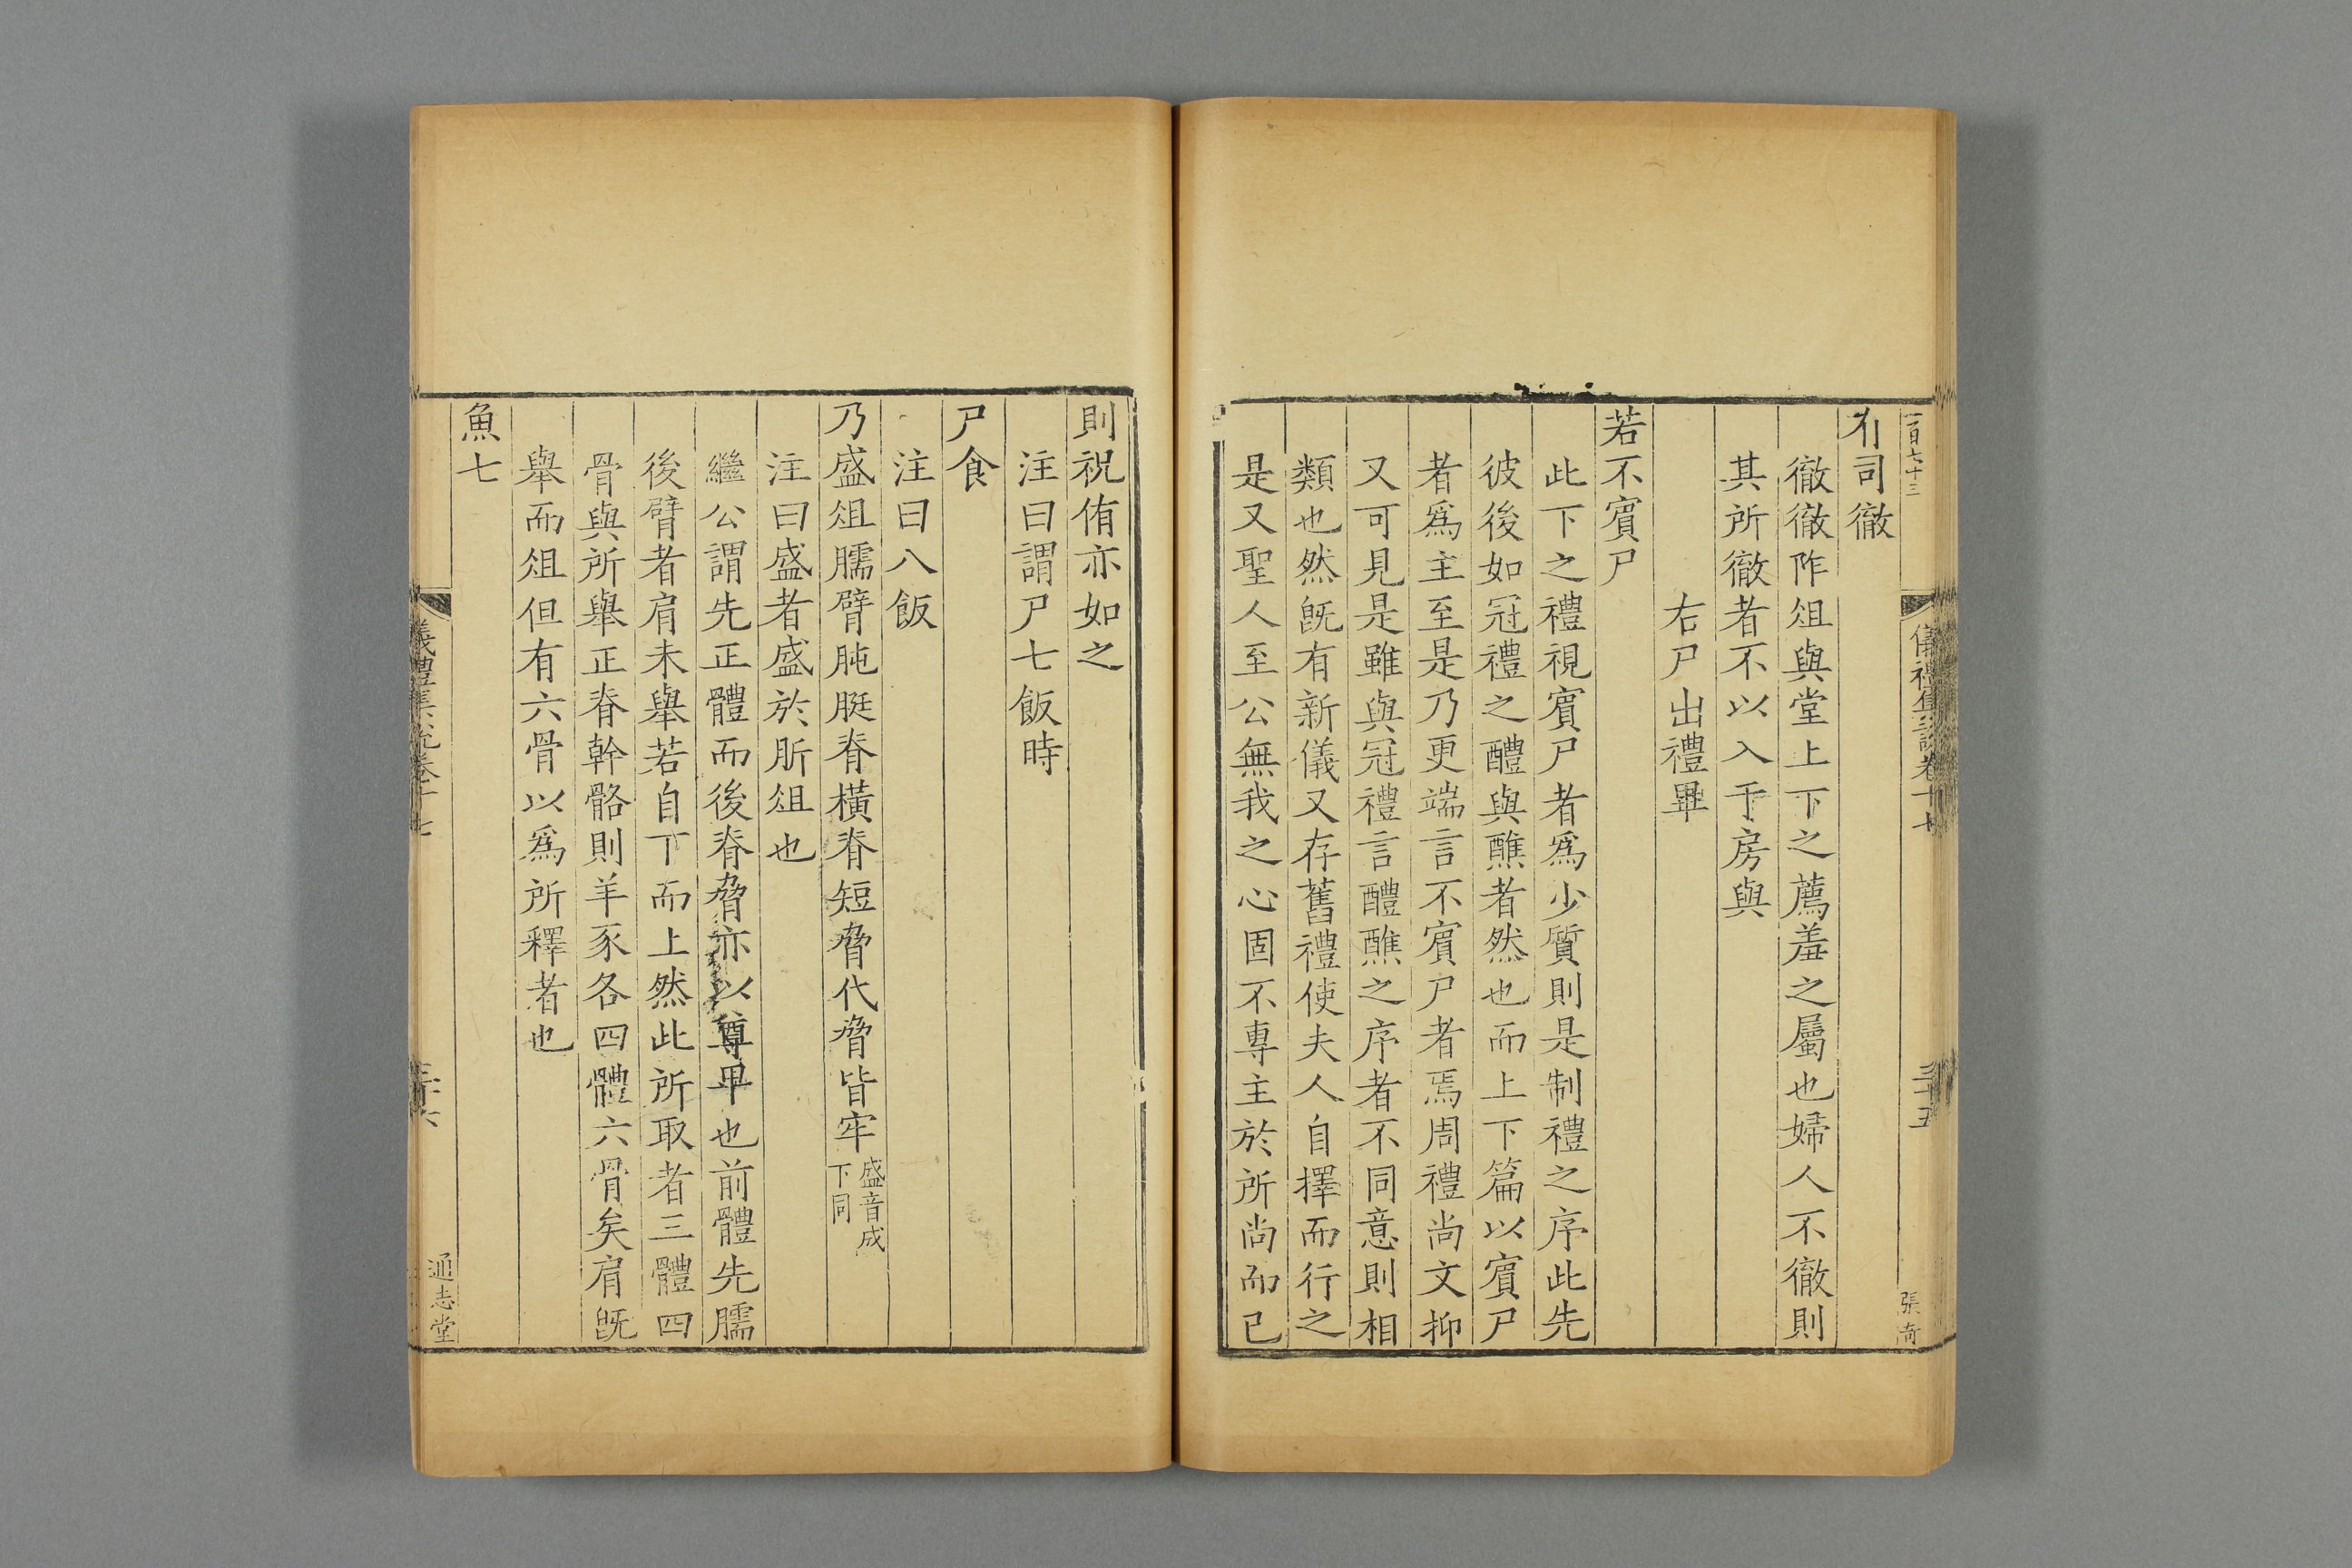 一百七十三
儀禮集說卷十七
三十五
張奇
有司徹
徹徹阼俎與堂上下之薦羞之屬也婦人不徹則
其所徹者不以入于房與
右尸出禮畢
若不賔尸
此下之禮視賔尸者爲少質則是制禮之序此先
彼後如冠禮之醴與醮者然也而上下篇以賔尸
者爲主至是乃更端言不賔尸者焉周禮尚文抑
又可見是雖與冠禮言醴醮之序者不同意則相
類也然旣有新儀又存舊禮使夫人自擇而行之
是又聖人至公無我之心固不專主於所尚而已
則祝侑亦如之
注曰謂尸七飯時
尸食
注曰八飯
乃盛俎臑臂肫脡脊橫脊短脅代脅皆牢盛音成下同
注曰盛者盛於肵俎也
繼公謂先正體而後脊脅亦以尊卑也前體先臑
後臂者肩未舉若自下而上然此所取者三體四
骨與所舉正脊幹骼則羊豕各四體六骨矣肩旣
舉而俎但有六骨以爲所釋者也
魚七
儀禮集說卷十七
三十六
通志堂